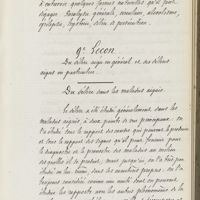 à entrevoir quelques formes naturelles qu'il faut
dégager. Paralysie générale, circulaire, alcoolisme,
épilepsie, hystérie, délire et persécution.
9e Leçon.
Du délire aigu en général et des délires
aigus en particulier.
Du délire dans les maladies aiguës.
Le délire a été étudié généralement dans les
maladies aiguës à deux points de vue principaux : on
l'a étudié sous le rapport des causes qui peuvent le produire
et sous le rapport des signes qu'il peut fournir pour
le diagnostic et le pronostic des maladies au milieu
desquelles il se produit, mais jusqu'ici on l'a fait peu
étudié en lui-même, dans ses caractères propres. On l'a
toujours considéré comme une unité dont on pouvait
étudier les rapports avec les autres phénomènes de la